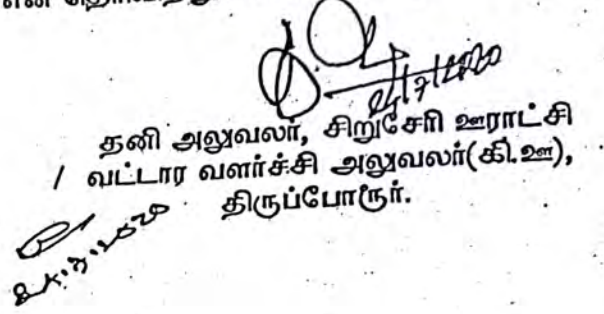 தனி அலுவலர், சிறுசேரி ஊராட்சி
/ வட்டார வளர்ச்சி அலுவலர்(கி.ஊ),
திருப்போரூர்.